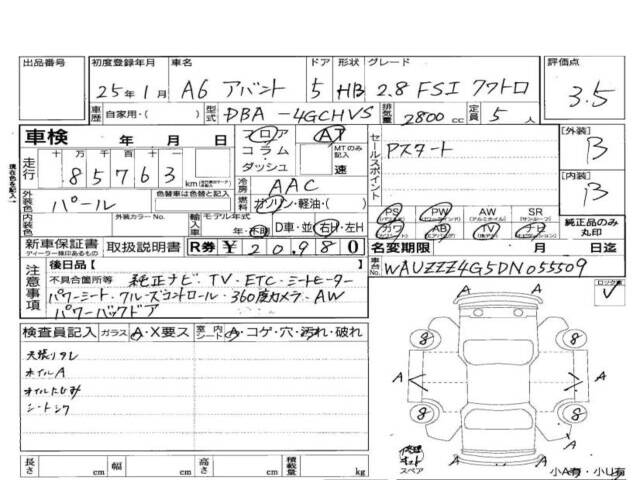 出品番号 初度登録年月 車名 ドア 形状 グレード 評価点
25年1月 A6 アバント 5 HB 2.8 FSI クワトロ 3.5
車歴 自家用・( ) 型式 DBA-4GCHVS 排気量 2800cc 定員 5人
車検 年 月 日 フロア AT セールスポイント Pスタート [外装] B
コラム・ MTのみ記入
走行 十 万 千 百 十 一 ダッシュ 速
85763 km [内装] B
冷房 AAC
外装色 色替車は色替と記入 パール 燃料 ガソリン・軽油・( ) PS PW AW SR
内装色 外装カラーNo. 輸入車 モデル年式 D車・並 右H・左H カワ AB TV ナビ 純正品のみ丸印
新車保証書 取扱説明書 R券 ¥20,980 名変期限 月 日迄
ディーラー捺印あるもの
後日品 [ ] 車台No. WAUZZZ4G5DN055509
注意事項 不具合箇所等 純正ナビ・TV・ETC・シートヒーター ロック車
パワーシート・クルーズコントロール・360度カメラ・AW
パワーバックドア
検査員記入 ガラス A・X要ス 室内シート A・コゲ・穴・汚れ・破れ
天張リタレ
ホイルA
オイルにじみ
シートシワ
A A
8 8
A A A
8 8
修理キット
スペア
A A
小A有・小U有
長さ cm 幅 cm 高さ cm 積載量 kg
現在色を記入